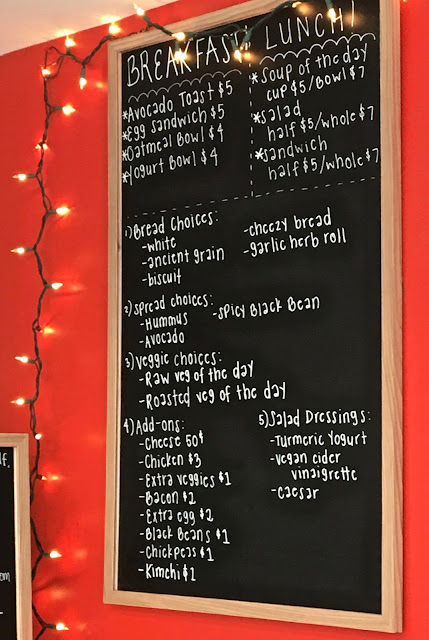 BREAKFAST!
*Avocado Toast $5
*Egg Sandwich $5
*Oatmeal Bowl $4
*Yogurt Bowl $4
LUNCH!
*Soup of the day
cup $5/Bowl $7
*Salad
half $5/whole $7
*Sandwich
half $5/whole $7
1) Bread Choices:
-white
-ancient grain
-biscuit
-cheezy bread
-garlic herb roll
2) Spread choices:
-Hummus
-Avocado
-Spicy Black Bean
3) Veggie choices:
-Raw veg of the day
-Roasted veg of the day
4) Add-ons:
-Cheese 50¢
-Chicken $3
-Extra veggies $1
-Bacon $2
-Extra egg $2
-Black Beans $1
-Chickpeas $1
-Kimchi $1
5) Salad Dressings:
-Turmeric Yogurt
-Vegan cider
vinaigrette
-Caesar